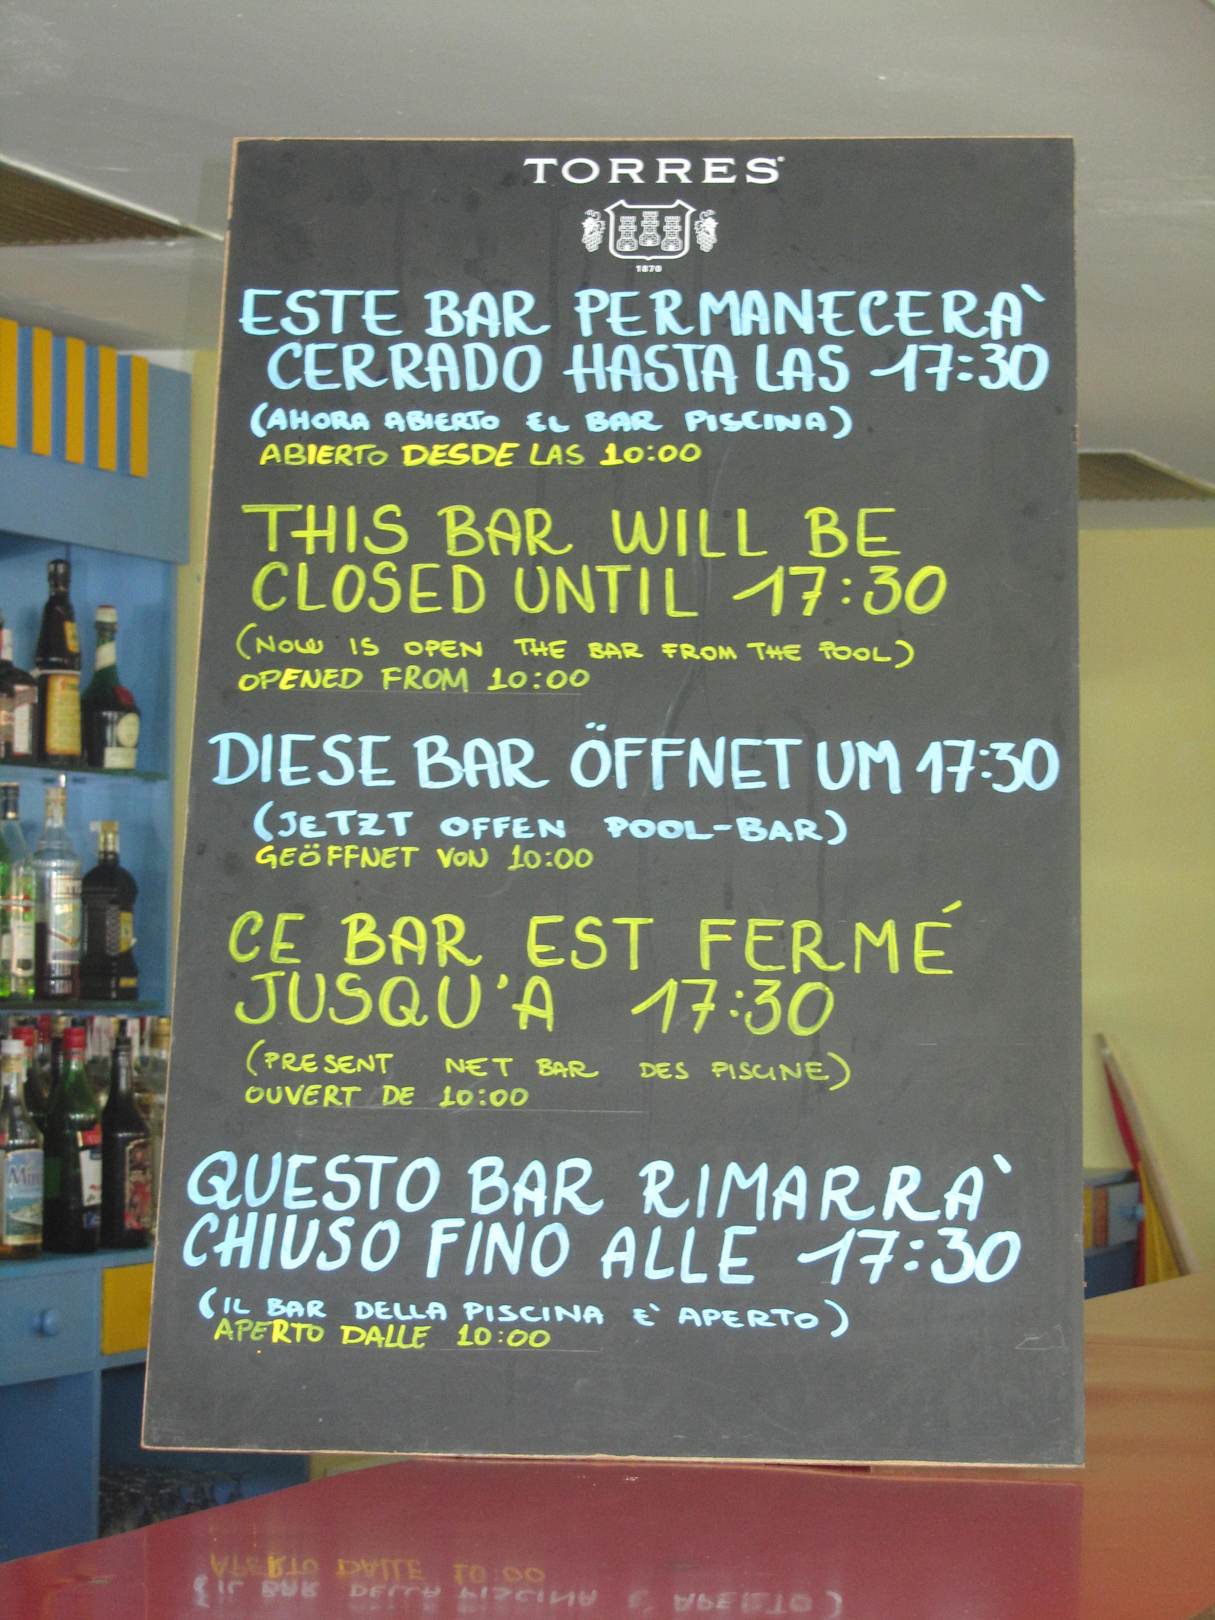 TORRES
1870
ESTE BAR PERMANECERÀ
CERRADO HASTA LAS 17:30
(AHORA ABIERTO EL BAR PISCINA)
ABIERTO DESDE LAS 10:00
THIS BAR WILL BE
CLOSED UNTIL 17:30
(NOW IS OPEN THE BAR FROM THE POOL)
OPENED FROM 10:00
DIESE BAR ÖFFNET UM 17:30
(JETZT OFFEN POOL-BAR)
GEÖFFNET VON 10:00
CE BAR EST FERMÉ
JUSQU'A 17:30
(PRESENT NET BAR DES PISCINE)
OUVERT DE 10:00
QUESTO BAR RIMARRÀ
CHIUSO FINO ALLE 17:30
(IL BAR DELLA PISCINA E' APERTO)
APERTO DALLE 10:00